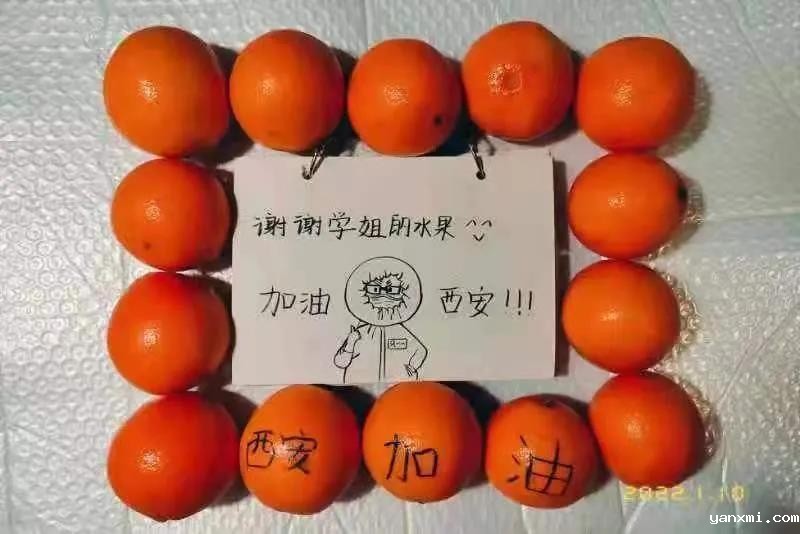 谢谢学姐的水果^^
加油 西安!!!
西安 加 油
2022.1.10
yanxmi.com